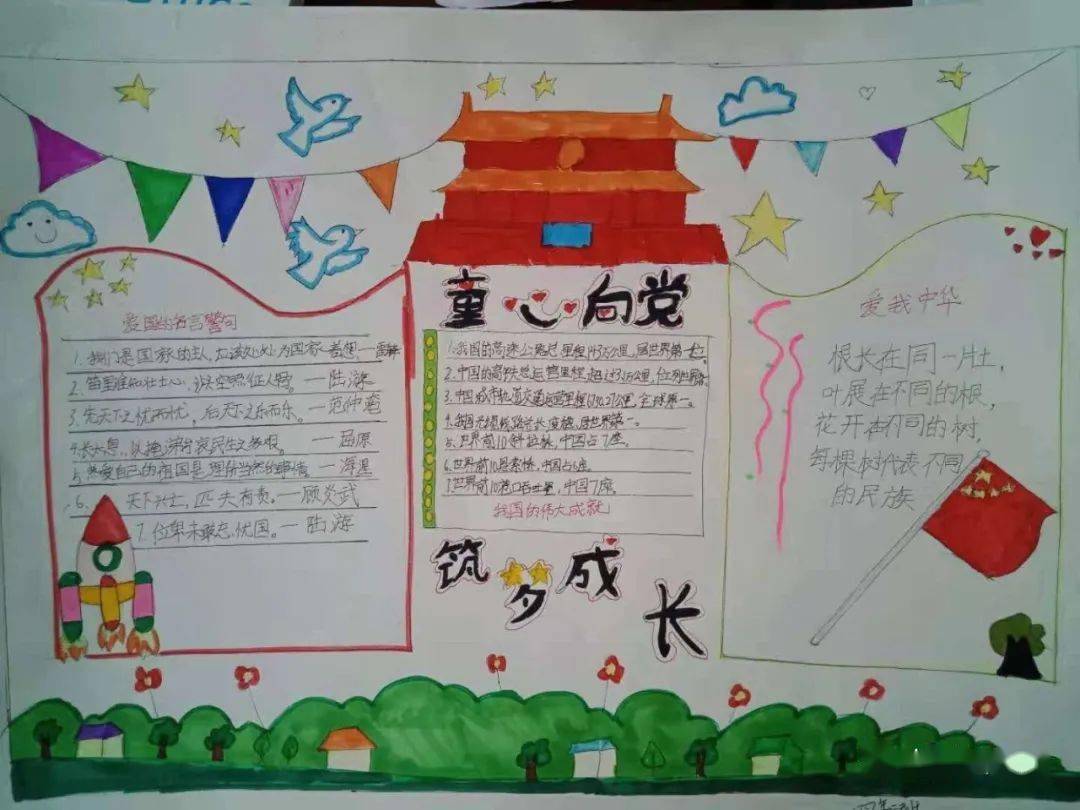 童心向党
爱国的名言警句
1.我们是国家的主人,应该处处为国家着想。—雷锋
2. —陆游
3.先天下之忧而忧,后天下之乐而乐。—范仲淹
4.长太息以掩涕兮哀民生之多艰。—屈原
5.热爱自己的祖国是理所当然的事情。—海涅
6.天下兴亡,匹夫有责。—顾炎武
7.位卑未敢忘忧国。—陆游
1.我国的高速公路总里程 万公里,居世界第一位。
2.中国的高铁总运营里程超过 万公里,位列世界
3.中国城市轨道交通运营里程 公里,全球第一。
4.我国光缆线路总长度 居世界第一。
5.世界前10 中国占7座。
6.世界前10悬索桥,中国占6座。
7.世界前10港口吞吐量,中国7席。
我国的伟大成就
筑梦成长
爱我中华
根长在同一片土,
叶展在不同的根,
花开在不同的树,
每棵树代表不同
的民族